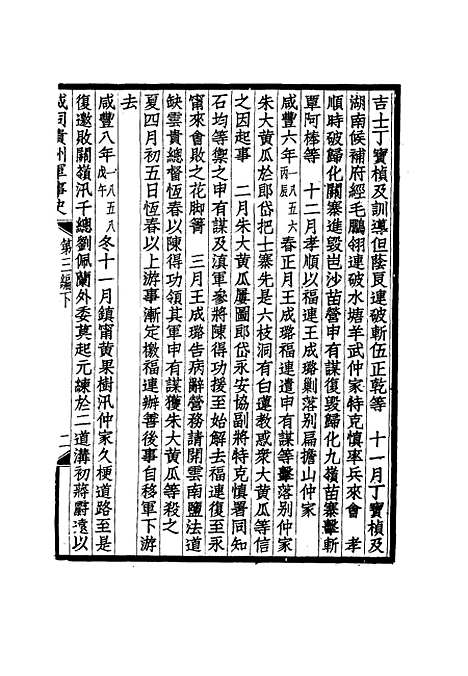 吉士丁寶楨及訓導但蔭良連破斬伍正乾等　十一月丁寶楨及
湖南候補府經毛鵬翎連破水塘羊武仲家特克慎率兵來會　孝
順時破歸化關寨進毀岜沙苗營申有謀復毀歸化九嶺苗寨擊斬
覃阿棒等　十二月孝順以福連王成璐剿落別扁擔山仲家
咸豐六年一八五六丙辰春正月王成璐福連遣申有謀等擊落別仲家
朱大黄瓜於郎岱把士寨先是六枝洞有白蓮教惑衆大黄瓜等信
之因起事　二月朱大黄瓜屢圖郎岱永安協副將特克慎署同知
石均等禦之申有謀及滇軍參將陳得功援至始解去福連復至永
甯來會敗之花脚箐　三月王成璐告病辭營務請開雲南鹽法道
缺雲貴總督恆春以陳得功領其軍申有謀獲朱大黄瓜等殺之
夏四月初五日恆春以上游事漸定檄福連辦善後事自移軍下游
去
咸豐八年一八五八戊午冬十一月鎮甯黄果樹汛仲家久梗道路至是
復邀敗關嶺汛千總劉佩蘭外委莫起元練於二道溝初蔣蔚遠以
咸同貴州軍事史
第三編下
二